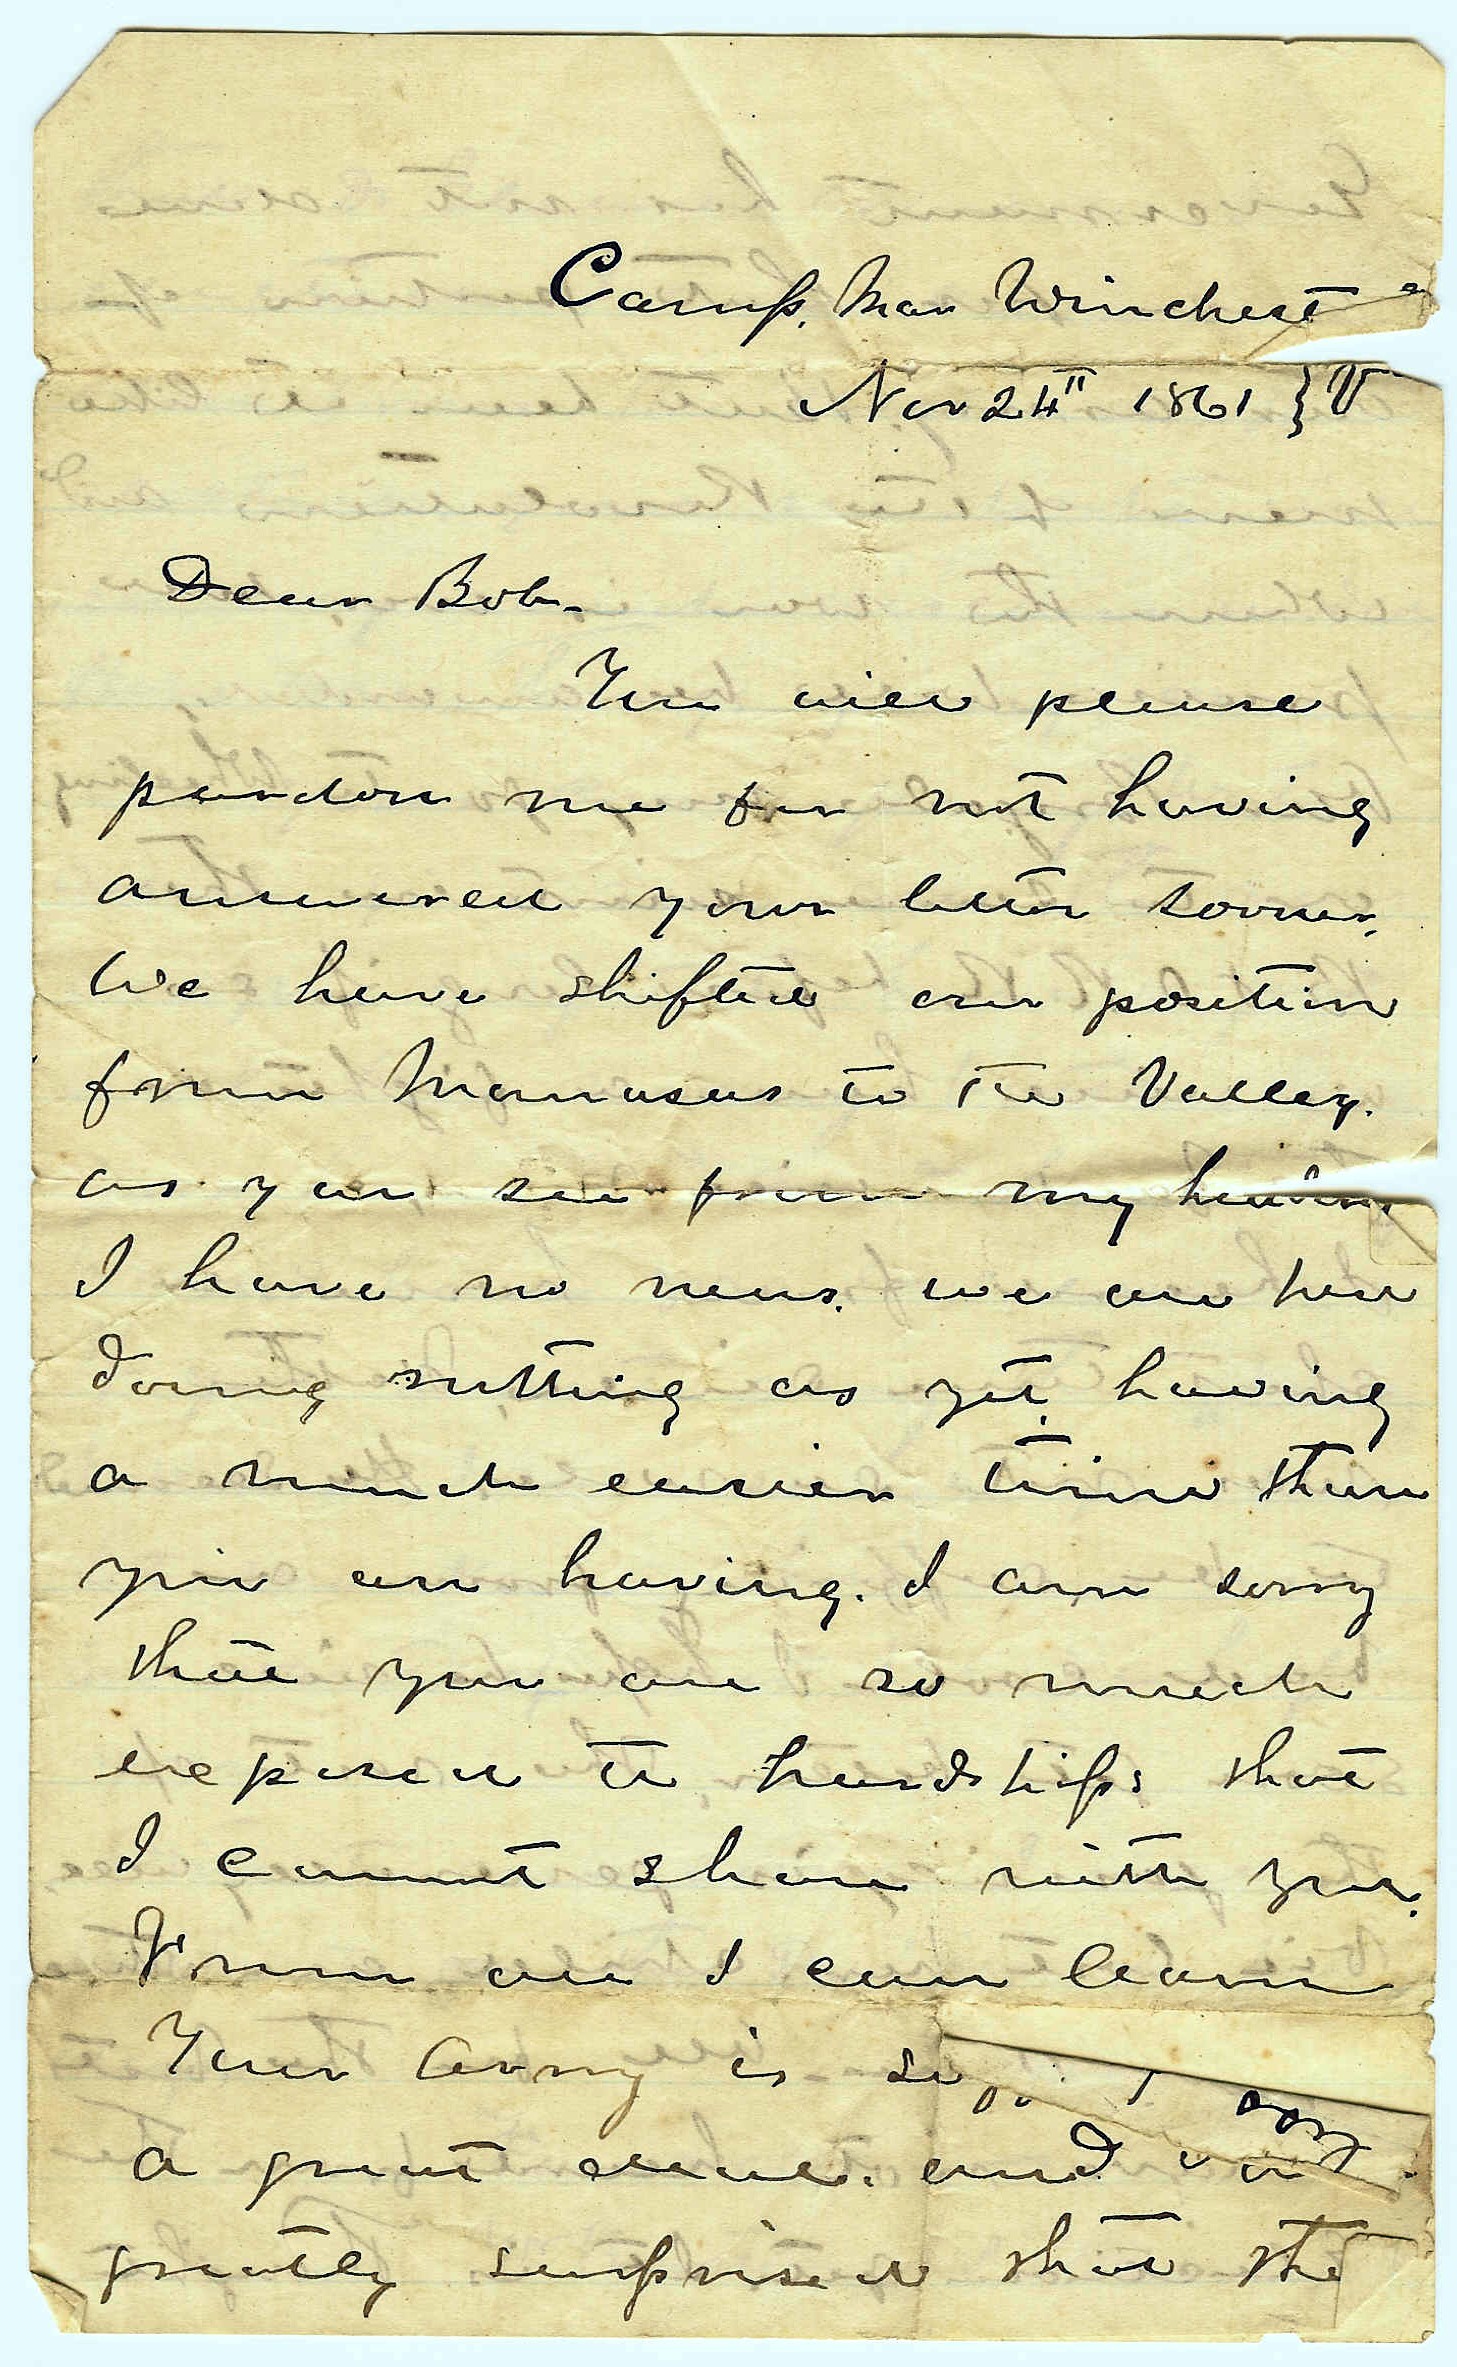 Camp. Near Winchest
Nov 24" 1861 } V
Dear Bob.
You will please
pardon me for not having
answered your letter sooner.
We have shifted our position
from Manasas to the Valley.
as you see from my heading
I have no news. we are here
doing nothing as yet, having
a much easier time than
you are having. I am sorry
that you are so much
exposed to hardships that
I cannot share with you.
From all I can learn
Your Army is
a great deal. and
greatly surprised that the